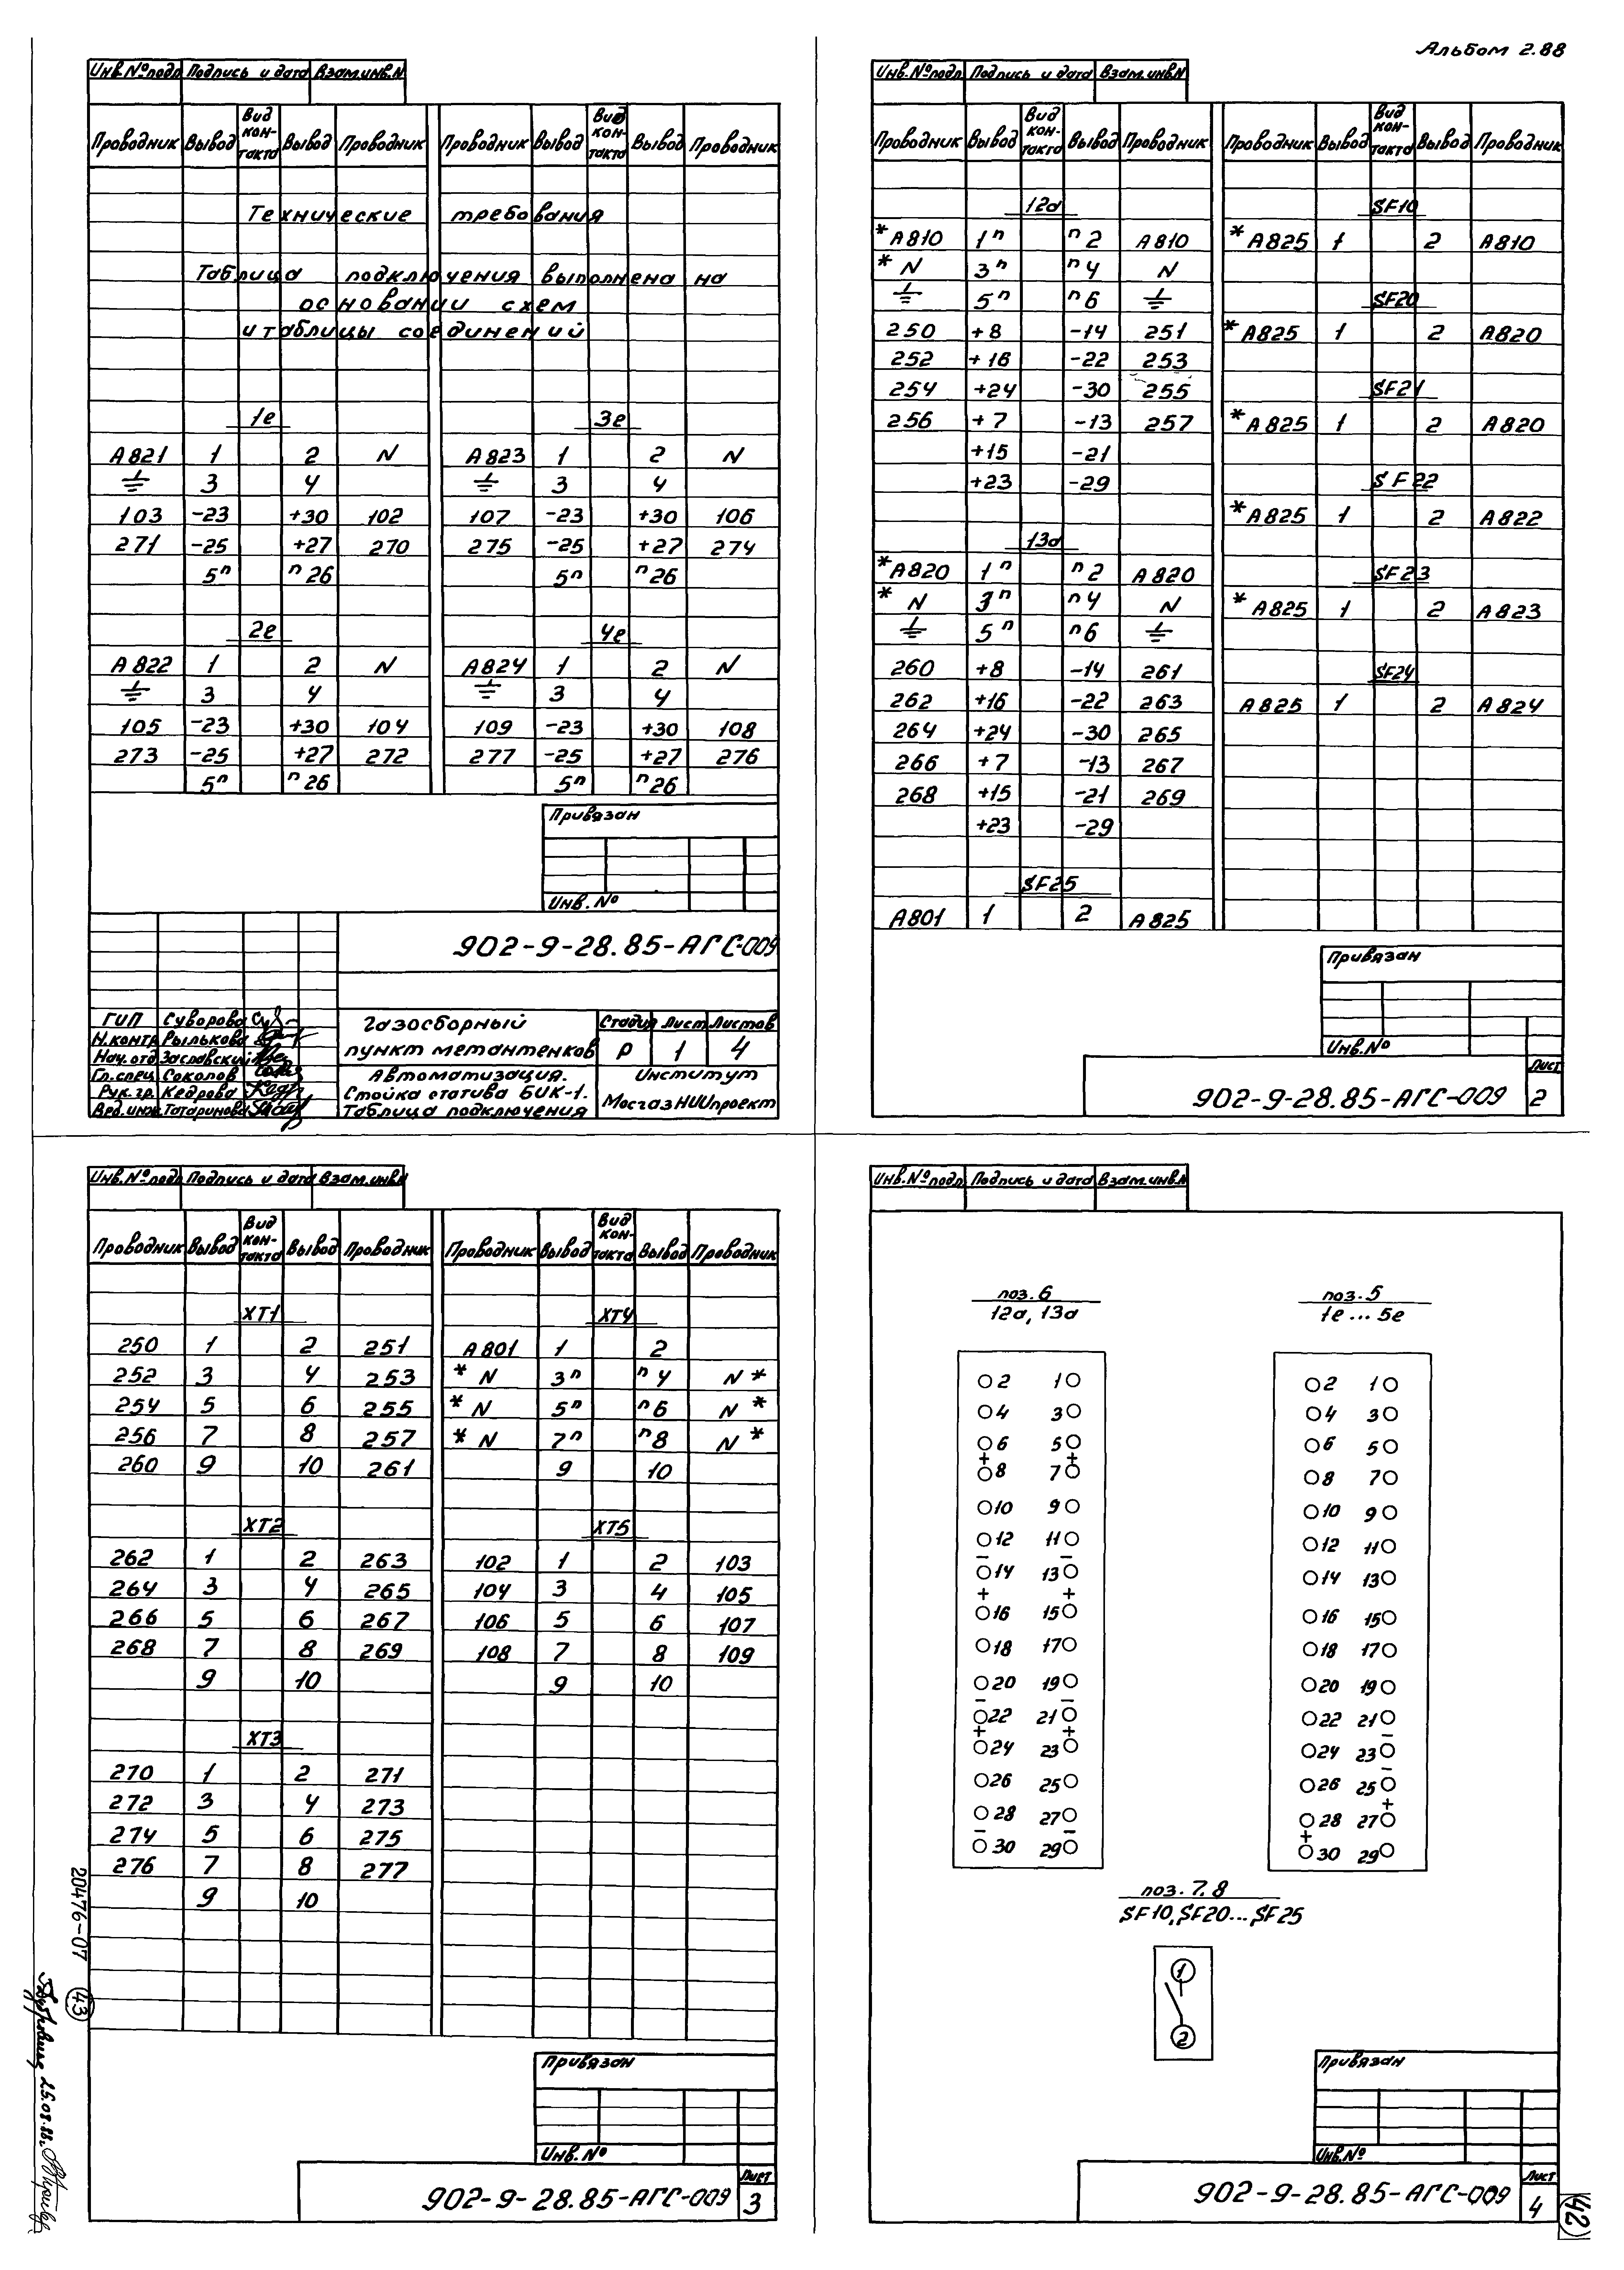 Альбом 2.88
Инв.№подл Подпись и дата Взам.инв.N
Проводник Вывод Вид кон-такта Вывод Проводник Проводник Вывод Вид кон-такта Вывод Проводник
Технические требования
Таблица подключения выполнена на
основании схем
и таблицы соединений
1е 3е
А821 1 2 N А823 1 2 N
⏚ 3 4 ⏚ 3 4
103 -23 +30 102 107 -23 +30 106
271 -25 +27 270 275 -25 +27 274
5п п26 5п п26
2е 4е
А822 1 2 N А824 1 2 N
⏚ 3 4 ⏚ 3 4
105 -23 +30 104 109 -23 +30 108
273 -25 +27 272 277 -25 +27 276
5п п26 5п п26
Привязан
Инв.№
902-9-28.85-АГС-009
ГИП Суворова
Н.контр Рылькова
Нач.отд Заславский
Гл.спец Соколов
Рук.гр. Кедрова
Вед.инж Татаринова
Газосборный
пункт метантенков
Стадия Лист Листов
Р 1 4
Автоматизация.
Стойка статива БИК-1.
Таблица подключения
Институт
МосгазНИИпроект
Инв.№подл Подпись и дата Взам.инв.N
Проводник Вывод Вид кон-такта Вывод Проводник Проводник Вывод Вид кон-такта Вывод Проводник
12а SF10
*А810 1п п2 А810 *А825 1 2 А810
*N 3п п4 N
⏚ 5п п6 ⏚ SF20
250 +8 -14 251 *А825 1 2 А820
252 +16 -22 253
254 +24 -30 255 SF21
256 +7 -13 257 *А825 1 2 А820
+15 -21
+23 -29 SF22
*А825 1 2 А822
13а
*А820 1п п2 А820 SF23
*N 3п п4 N *А825 1 2 А823
⏚ 5п п6 ⏚
260 +8 -14 261 SF24
262 +16 -22 263 А825 1 2 А824
264 +24 -30 265
266 +7 -13 267
268 +15 -21 269
+23 -29
SF25
А801 1 2 А825
Привязан
Инв.№
902-9-28.85-АГС-009
Лист
2
Инв.№подл Подпись и дата Взам.инв.N
Проводник Вывод Вид кон-такта Вывод Проводник Проводник Вывод Вид кон-такта Вывод Проводник
ХТ1 ХТ4
250 1 2 251 А801 1 2
252 3 4 253 *N 3п п4 N*
254 5 6 255 *N 5п п6 N*
256 7 8 257 *N 7п п8 N*
260 9 10 261 9 10
ХТ2 ХТ5
262 1 2 263 102 1 2 103
264 3 4 265 104 3 4 105
266 5 6 267 106 5 6 107
268 7 8 269 108 7 8 109
9 10 9 10
ХТ3
270 1 2 271
272 3 4 273
274 5 6 275
276 7 8 277
9 10
Привязан
Инв.№
902-9-28.85-АГС-009
Лист
3
20476-07
43
25.08.88г.
Инв.№подл Подпись и дата Взам.инв.N
поз.6
12а, 13а
2 1
4 3
6 5
+ +
8 7
10 9
12 11
- -
14 13
+ +
16 15
18 17
20 19
- -
22 21
+ +
24 23
26 25
28 27
- -
30 29
поз.5
1е...5е
2 1
4 3
6 5
8 7
10 9
12 11
14 13
16 15
18 17
20 19
22 21
-
24 23
-
26 25
+
28 27
+
30 29
поз.7.8
SF10, SF20...SF25
1
2
Привязан
Инв.№
902-9-28.85-АГС-009
Лист
4
42